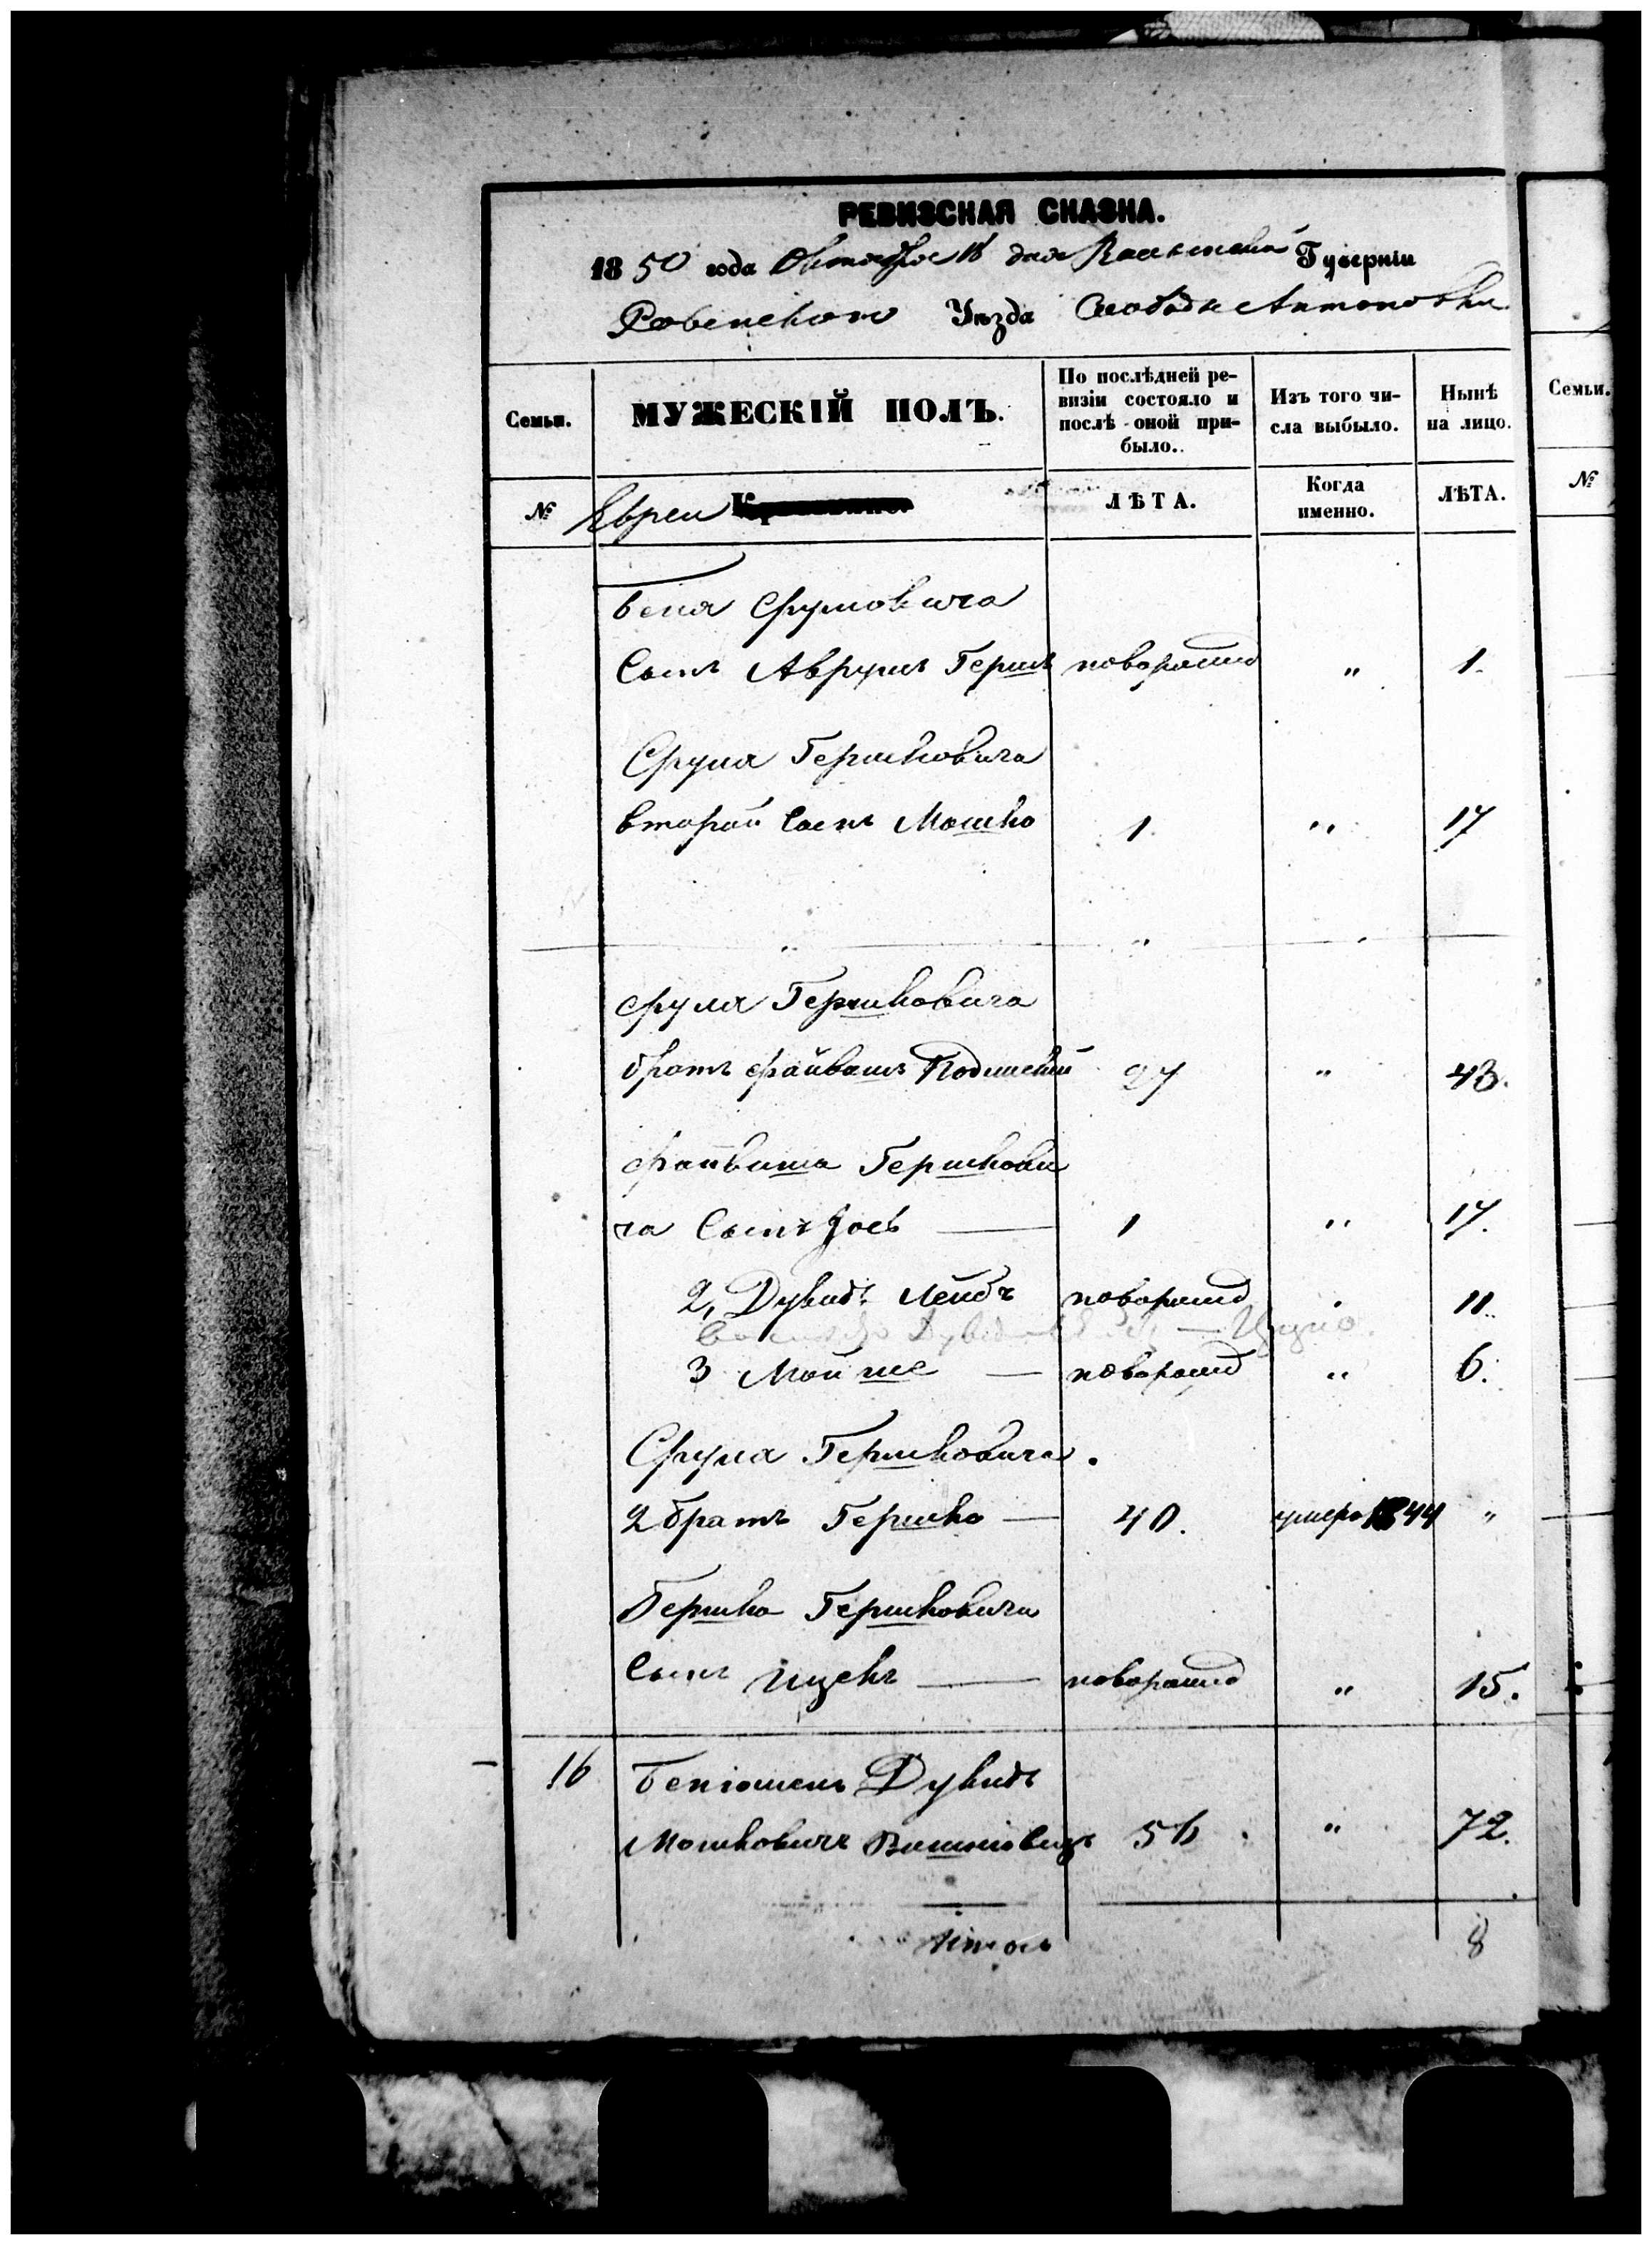 РЕВИЗСКАЯ СКАЗКА.
1850 года Октября 16 дня Волынской Губерніи
Ровенского Уѣзда Слободы Антоновки
Семьи.
МУЖЕСКІЙ ПОЛЪ.
По послѣдней ре-
визіи состояло и
послѣ оной при-
было.
Изъ того чи-
сла выбыло.
Нынѣ
на лицо.
Семьи.
№
Евреи
ЛѢТА.
Когда
именно.
ЛѢТА.
№
Беня Срулювича
Сынъ Аврумъ Гершъ новорожд " 1.
Сруля Гершковича
второй Сынъ Мошко 1 " 17
" "
Сруля Гершковича
братъ Файвишъ 27 " 43.
Файвиша Гершкови
ча Сынъ Іось — 1 " 17.
2, Дувидъ Лейбъ новорожд " 11
3 Мойше — новорожд " 6.
Сруля Гершковича.
2 братъ Гершко — 40. умеръ 1844 "
Гершка Гершковича
Сынъ Ицекъ — новорожд " 15.
16 Беніоменъ Дувидъ
Мошковичъ 56 " 72.
Итого 8